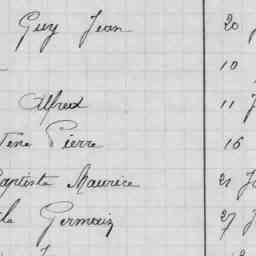 Guy Jean 20 J
10
Alfred 11 J
Pierre 16
Baptista Maurice 21 J
Germain 27 J